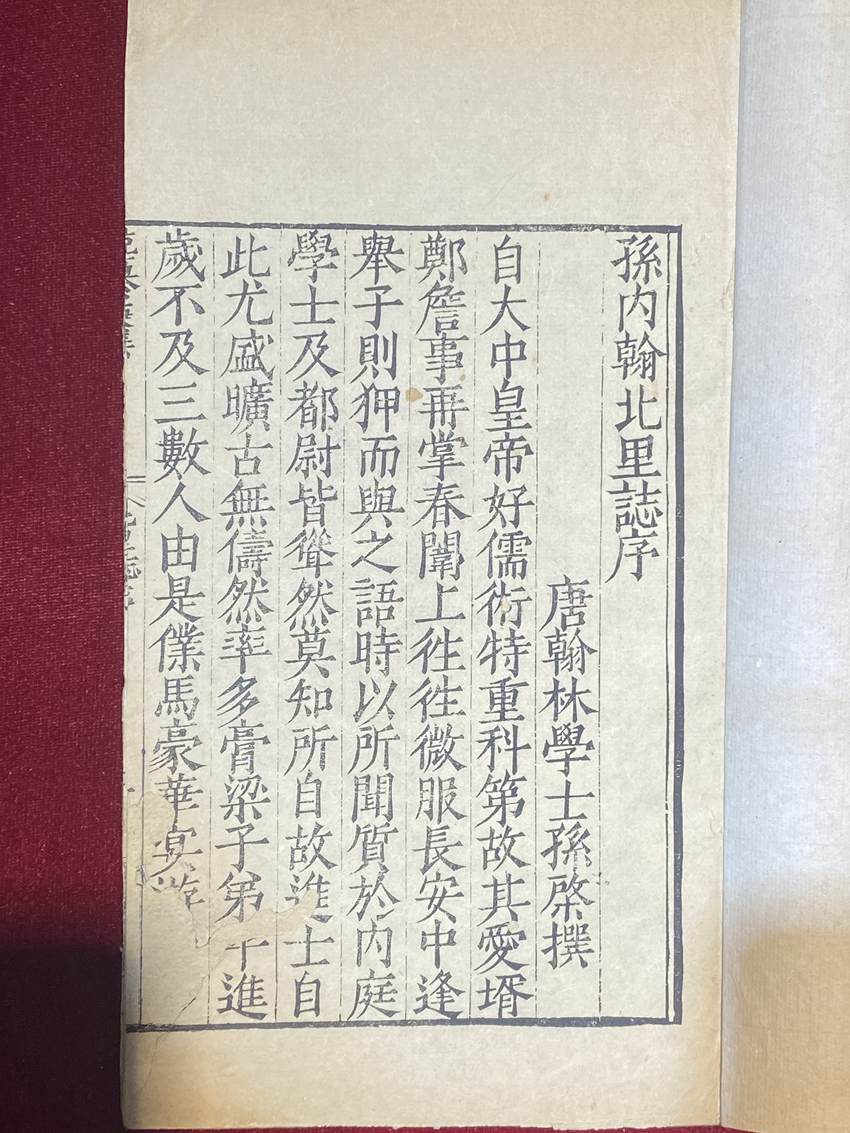 孫內翰北里誌序
唐翰林學士孫棨撰
自大中皇帝好儒術特重科第故其愛壻
鄭詹事再掌春闈上徃徃微服長安中逢
舉子則狎而與之語時以所聞質於內庭
學士及都尉皆聳然莫知所自故進士自
此尤盛曠古無儔然率多膏粱子弟平進
歲不及三數人由是僕馬豪華宴遊